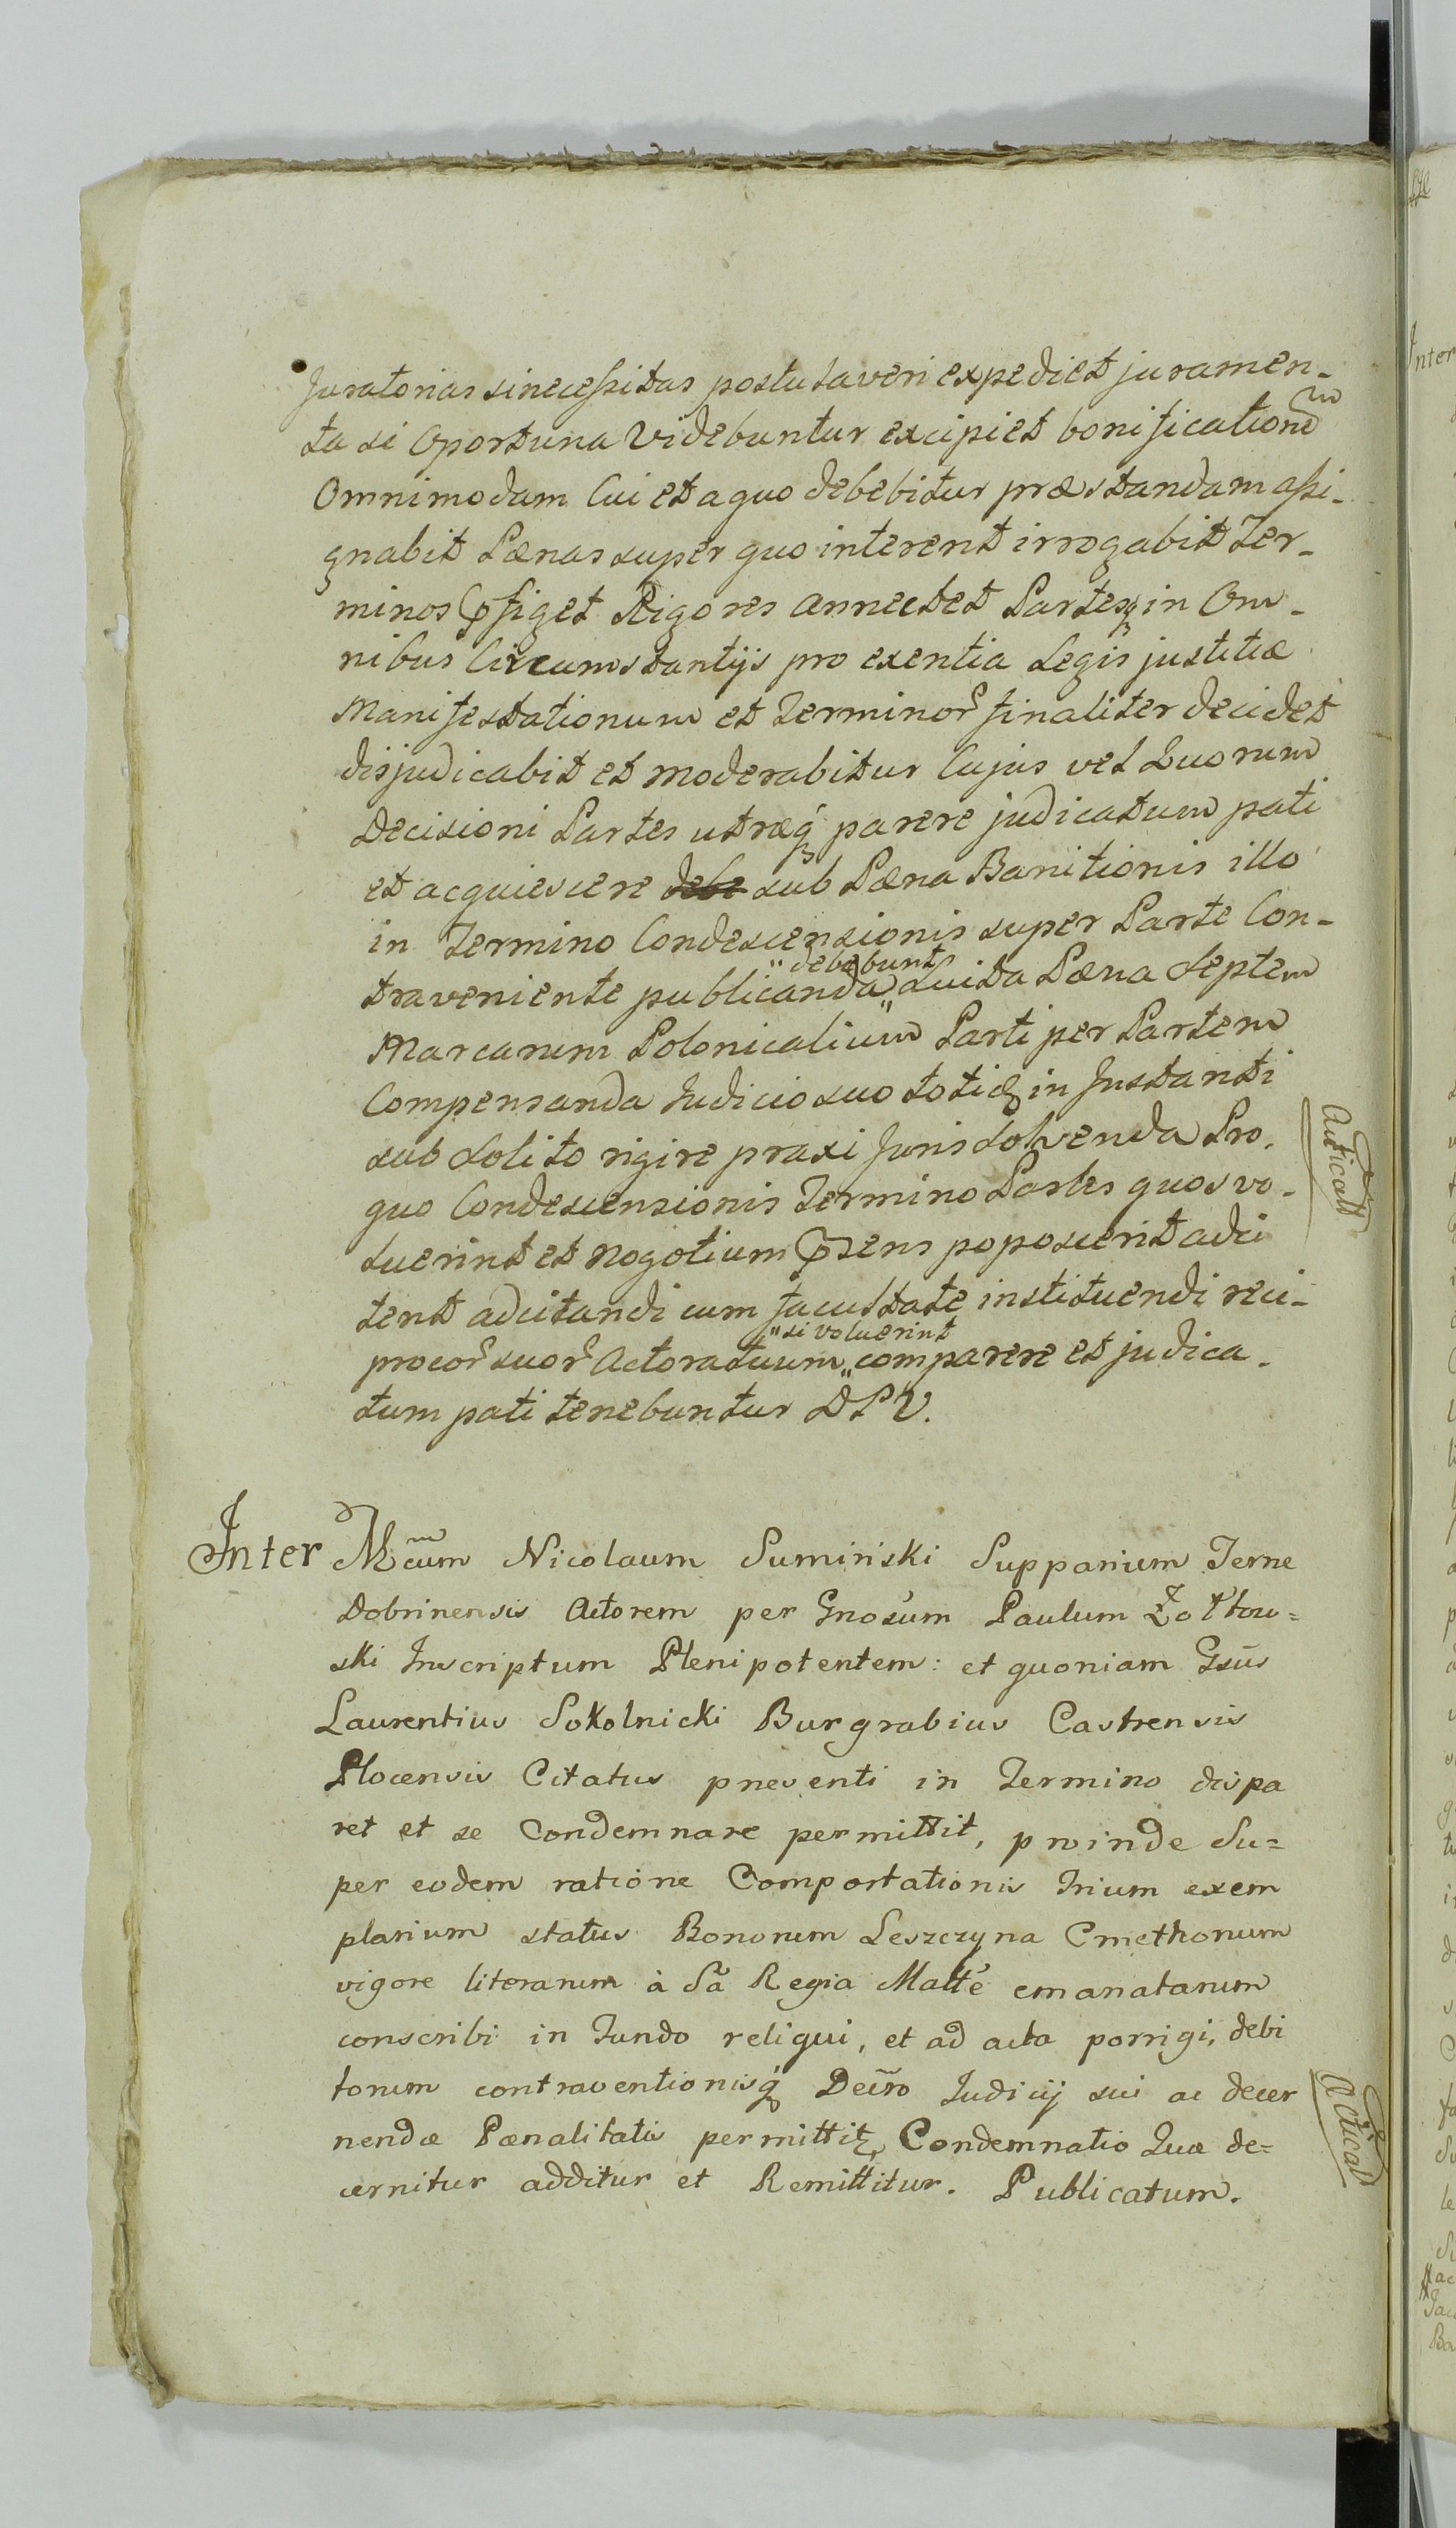 Juratorias si necessitas postulaveri expediet juramen-
ta si Oportuna Videbuntur excipiet bonificationem
Omnimodam Cui et a quo debebitur præstandam assi-
gnabit Pænas super quo interent irrogabit Ter-
minos pfiget Rigores annectet Partesq in Om-
nibus Circumstantijs pro exentia Legis justitiæ
Manifestationum et Terminor finaliter decidet
disjudicabit et moderabitur Cujus vel Quorum
Decisioni Partes utræq parere judicatum pati
et acquiescere debe sub Pæna Banitionis illo
in Termino Condescensionis super Parte Con-
debebunt
traveniente publicanda Luita Pæna Septem
Marcarum Polonicalium Parti per Partem
Compensanda Judicio suo totiq in Instanti
sub Solito rigire praxi Juris Solvenda Pro
quo Condescensionis Termino Partes quos vo-
luerint et Nogotium psens poposcerit adci
tent adcitandi cum facultate instituendi reci-
si voluerint
procor suor Actoratuum comparere et judica-
tum pati tenebuntur DPV.
Acticatt
Inter Mcum Nicolaum Sumiński Supparium Terræ
Dobrinensis Actorem per Gnosum Paulum Żółtow=
ski Inscriptum Plenipotentem: et quoniam Gsus
Laurentius Sokolnicki Burgrabius Castrensis
Plocensis Citatus presenti in Termino dispa
ret et se Condemnare permittit, proinde Su=
per eodem ratione Comportationis Trium exem
plarium status Bonorum Leszczyna Cmethonum
vigore literarum à Sa Regia Matte emanatarum
conscribi in Fundo reliqui, et ad acta porrigi, debi
torum contraventionisq Decro Judicij sui ac decer
nendæ Pænalitatis permittit, Condemnatio Quæ de=
cernitur additur et Remittitur. Publicatum.
Acticat